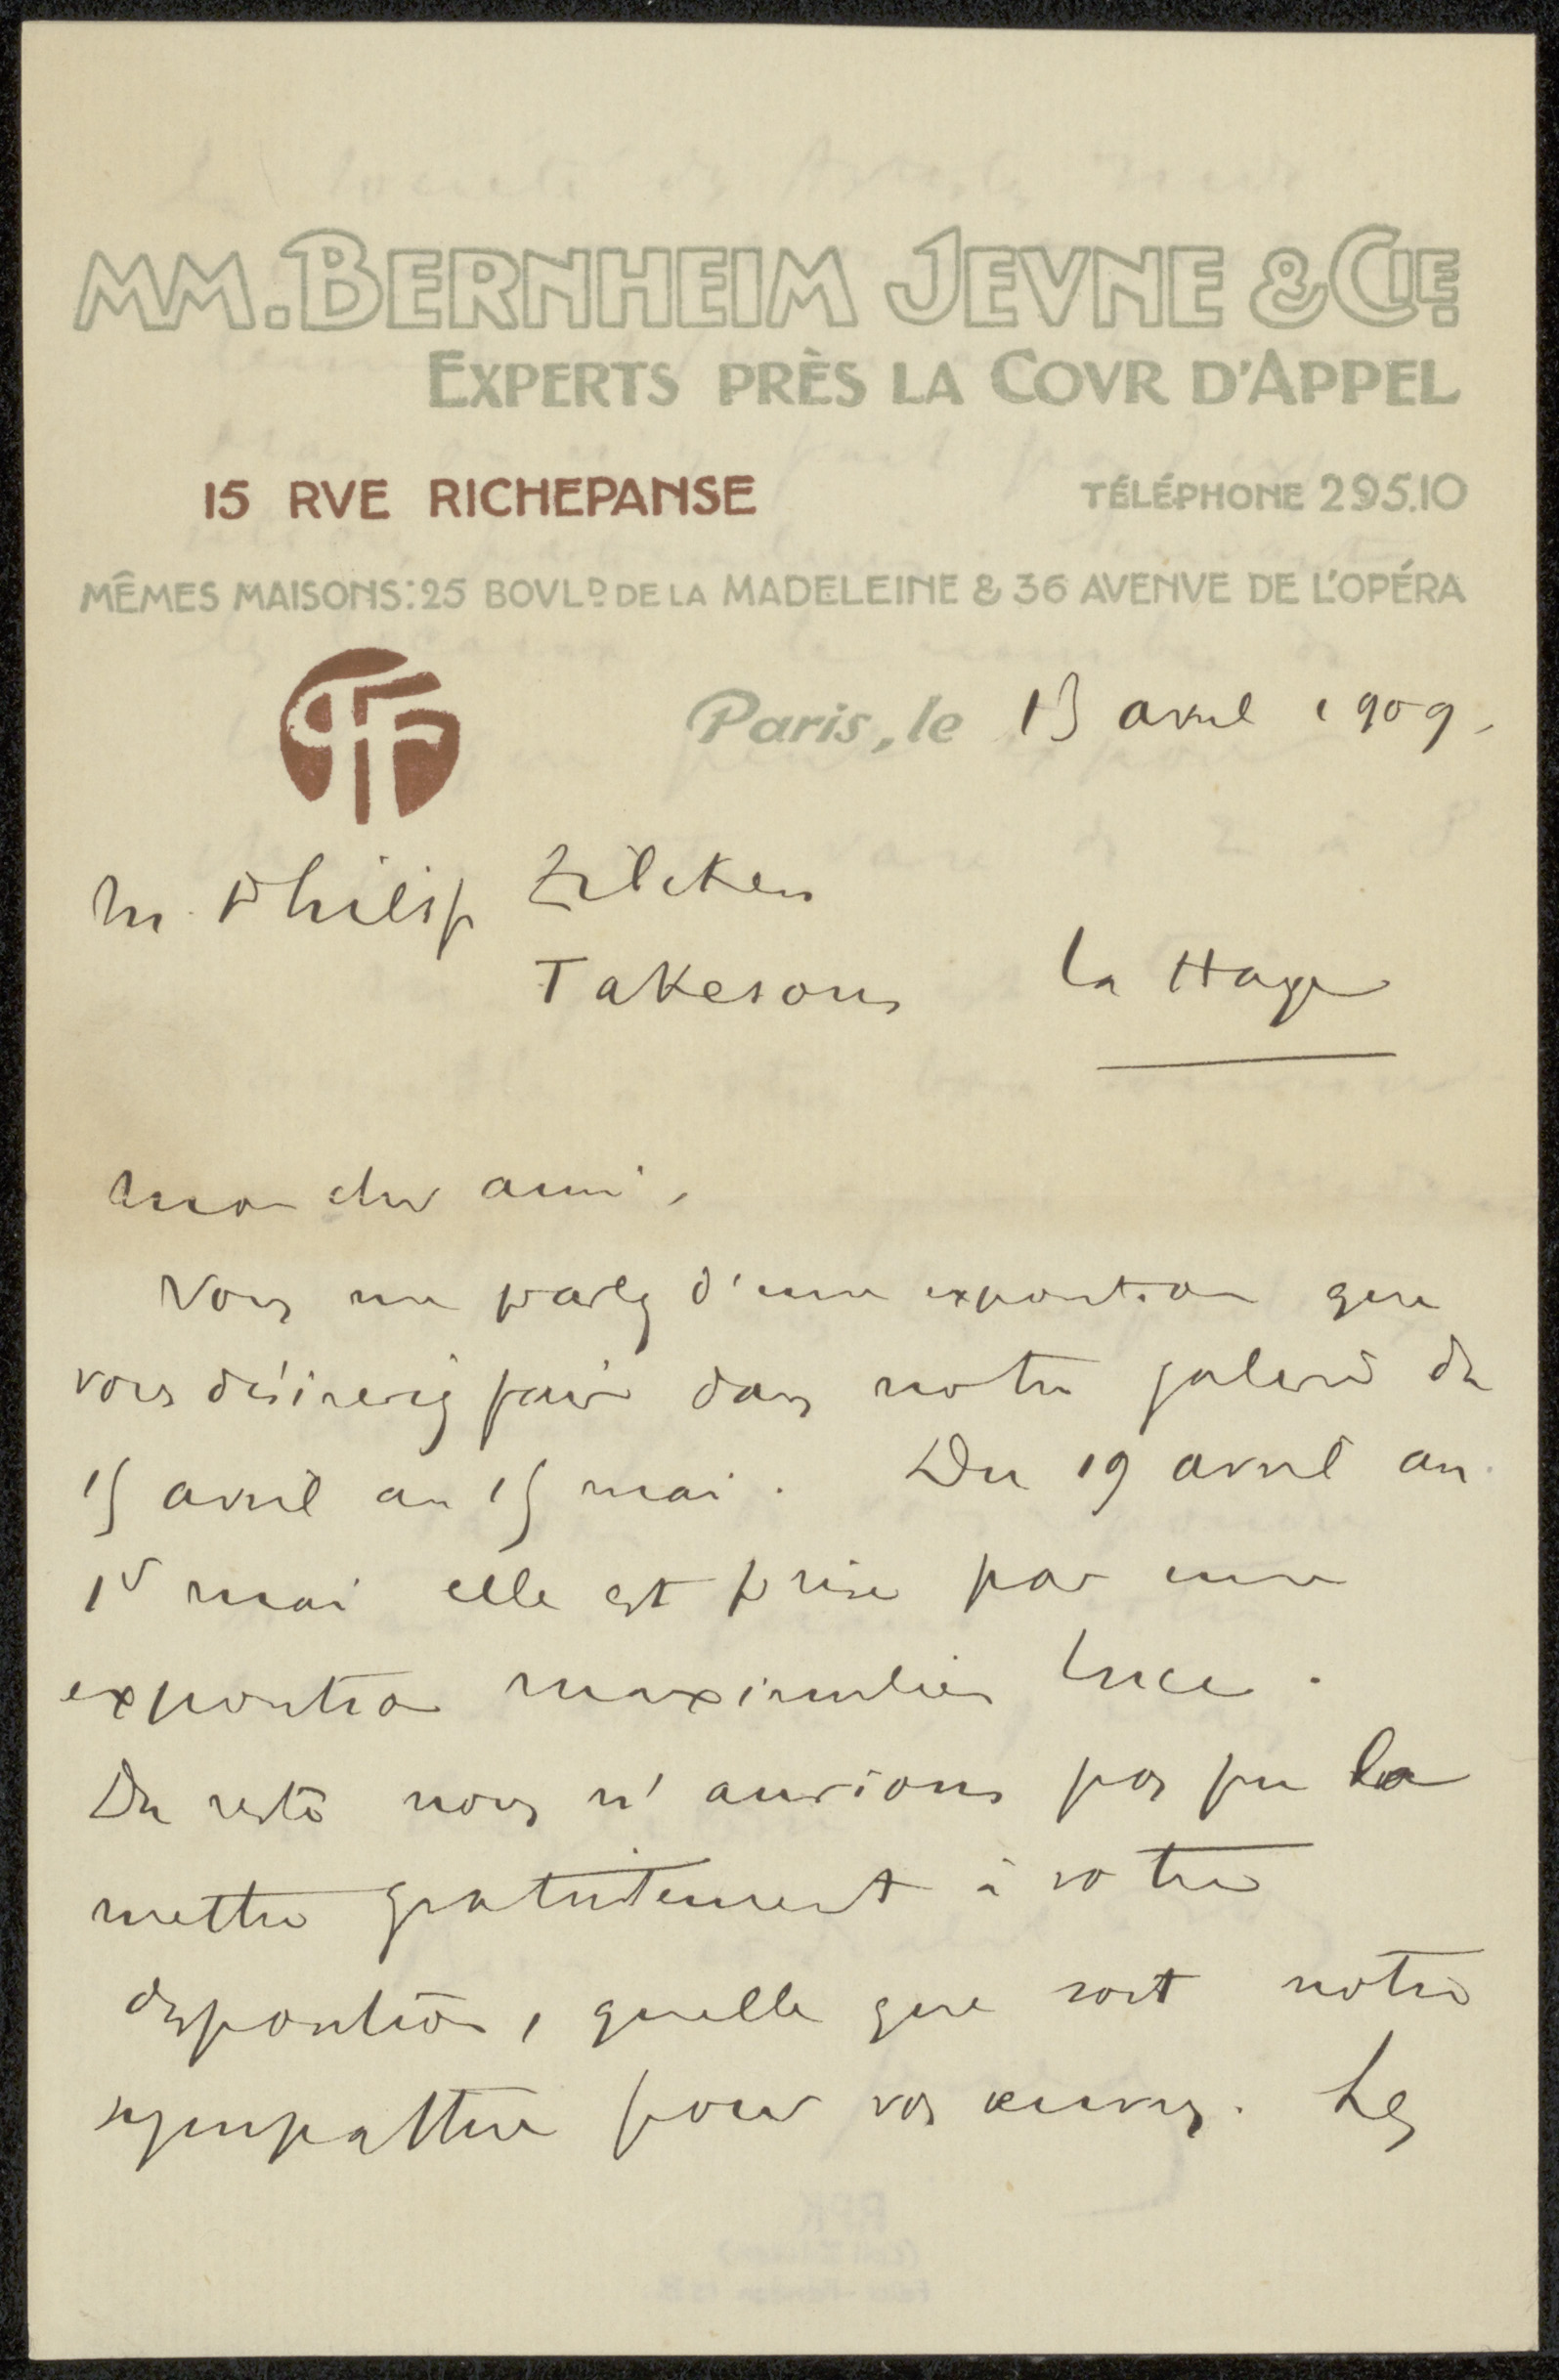 MM. BERNHEIM JEVNE & CIE
EXPERTS PRÈS LA COVR D'APPEL
15 RVE RICHEPANSE
TÉLÉPHONE 295.10
MÊMES MAISONS: 25 BOVLD DE LA MADELEINE & 36 AVENVE DE L'OPÉRA
Paris, le 13 avril 1909.
M. Philip Zilcken
Takesono la Haye
Mon cher ami,
Vous me parlez d'une exposition que
vous désireriez faire dans notre galerie du
15 avril au 15 mai. Du 19 avril au
1er mai elle est prise par une
exposition Maximilien Luce.
Du reste nous n'aurions pas pu la
mettre gratuitement à votre
disposition, quelle que soit notre
sympathie pour vos œuvres. Les